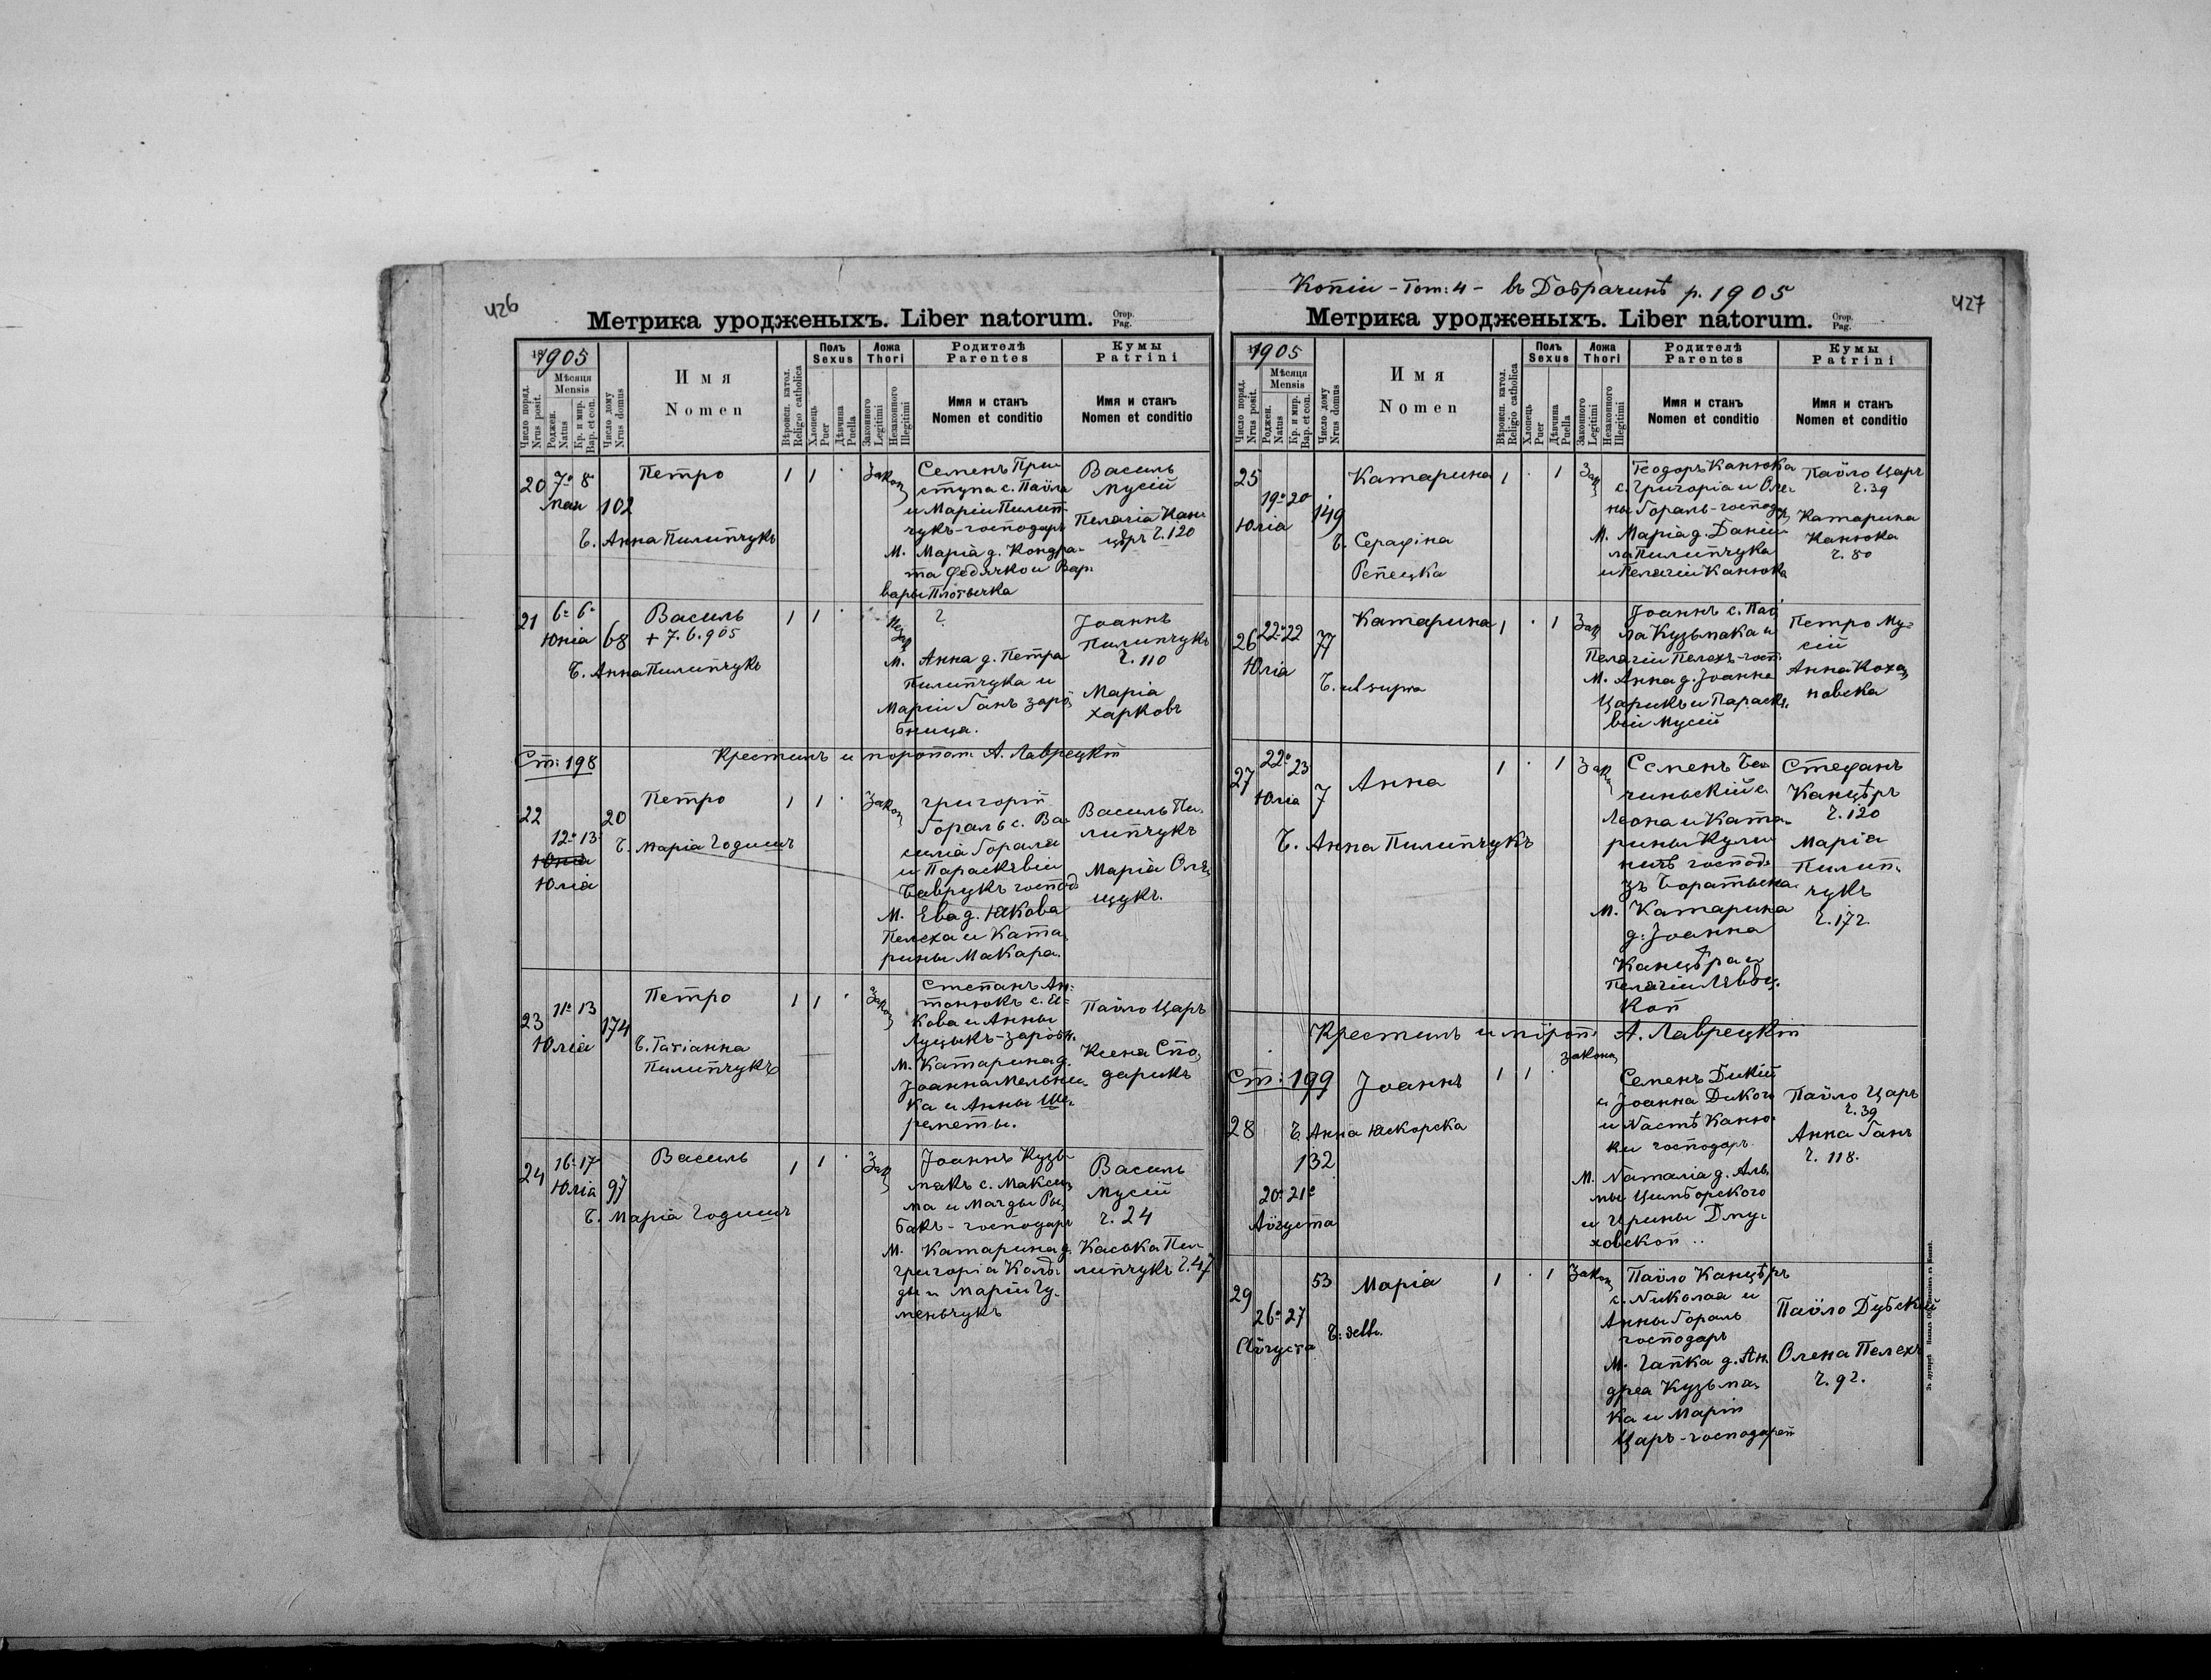 426
Метрика уродженыхъ. Liber natorum.
Стор.
Pag.
1905
Число поряд.
Nrus posit.
Мѣсяця
Mensis
Роджен.
Natus
Кр. и мир.
Bap. et con.
Число дому
Nrus domus
Имя
Nomen
Вѣроисп. катол.
Religio catholica
Полъ
Sexus
Хлопець
Puer
Дѣвчина
Puella
Ложа
Thori
Законного
Legitimi
Незаконного
Illegitimi
Родителѣ
Parentes
Имя и станъ
Nomen et conditio
Кумы
Patrini
Имя и станъ
Nomen et conditio
20 7° 8
мая 102
Петро
Б. Анна Пилипчукъ
1 1 ·
Закон
Семенъ При-
ступа с. Павла
и Маріи Пилип-
чукъ-господарь
М. Марія д. Кондра-
та Федячко и Вар-
вары
Василь
Мусій
Пелагія Кан-
цѣръ ч. 120
21 6° 6°
Юнія 68
Василь
+ 7.6.905
Б. Анна Пилипчукъ
1 1 ·
Незак
?
М. Анна д. Петра
Пилипчука и
Маріи Ганъ заро-
бница.
Іоаннъ
Пилипчукъ
ч. 110
Марія
Харковъ
Ст: 198 Крестилъ и мѵропом. А. Лаврецкій
22
12° 13
Юнія
Юлія
20
Петро
Б. Марія Годишъ
1 1 ·
Закон
Григорій
Гораль с. Ва-
силія Гораля
и Параскевіи
Баврукъ господ
М. Ева д. Якова
Пелеха и Ката-
рины Макара.
Василь Пи-
липчукъ
Марія Оле-
щукъ.
23 11° 13
Юлія
174
Петро
Б. Татіанна
Пилипчукъ
1 1 ·
Закон
Степанъ Ан-
тонюкъ с. Я-
кова и Анны
Луцыкъ-заробн.
М. Катарина д.
Іоанна Мельни-
ка и Анны Ше-
реметы.
Павло Царь
Ксена Спо-
дарикъ
24 16° 17
Юлія 97
Василь
Б. Марія Годишъ
1 1 ·
Зак
Іоаннъ Кузь-
макъ с. Макси-
ма и Магды Ры-
бакъ - господарь
М. Катарина д.
Григорія Колъ-
ды и Маріи Гу-
меньчукъ
Василь
Мусій
ч. 24
Каська Пи-
липчукъ ч. 47
Копіи - Том: 4 - въ Добрачинѣ р. 1905
427
Метрика уродженыхъ. Liber natorum.
Стор.
Pag.
1905
Число поряд.
Nrus posit.
Мѣсяця
Mensis
Роджен.
Natus
Кр. и мир.
Bap. et con.
Число дому
Nrus domus
Имя
Nomen
Вѣроисп. катол.
Religio catholica
Полъ
Sexus
Хлопець
Puer
Дѣвчина
Puella
Ложа
Thori
Законного
Legitimi
Незаконного
Illegitimi
Родителѣ
Parentes
Имя и станъ
Nomen et conditio
Кумы
Patrini
Имя и станъ
Nomen et conditio
25
19° 20
Юлія
149
Катарина
Б. Серафіна
Репецка
1 · 1
Зак
Теодоръ Канюка
с. Григорія и Оле-
ны Гораль-господ
М. Марія д. Даніи-
ла Пилипчука
и Пелагіи Канюка
Павло Царь
ч. 39
Катарина
Канюка
ч. 80
26 22° 22
Юлія
77
Катарина
Б. ut supra
1 · 1
Зак
Іоаннъ с. Пав-
ла Кузьмака и
Пелагіи Пелехъ-госп.
М. Анна д. Іоанна
Царикъ и Параске-
віи Мусій
Петро Му-
сій
Анна Коха-
новска
27 22° 23
Юлія 7
Анна
Б. Анна Пилипчукъ
1 · 1
Зак
Семенъ
с.
Леона и Ката-
рины
господ.
зъ
М. Катарина
д. Іоанна
Канцѣра и
Пелагіи
Стефанъ
Канцѣръ
ч. 120
Марія
Пилип-
чукъ
ч. 172
Крестилъ и мѵроп. А. Лаврецкій
Ст: 199
28
132
20° 21°
Августа
Іоаннъ
Б. Анна Яскорска
1 1 ·
закона
Семенъ Дикій
и Іоанна Дикого
и Настѣ Каню-
ки господарь.
М. Наталія д.
Цимборского
и Ирины Дму-
ховской ..
Павло Царь
ч. 39
Анна Ганъ
ч. 118.
29
26° 27
Августа
53
Марія
Б:
1 · 1
Закон
Павло Канцѣръ
с. Николая и
Анны Гораль
господарь
М. Гапка д. Ан-
дрея Кузьма-
ка и Маріи
Царь-господарей
Павло Дубский
Олена Пелехъ
ч. 92.